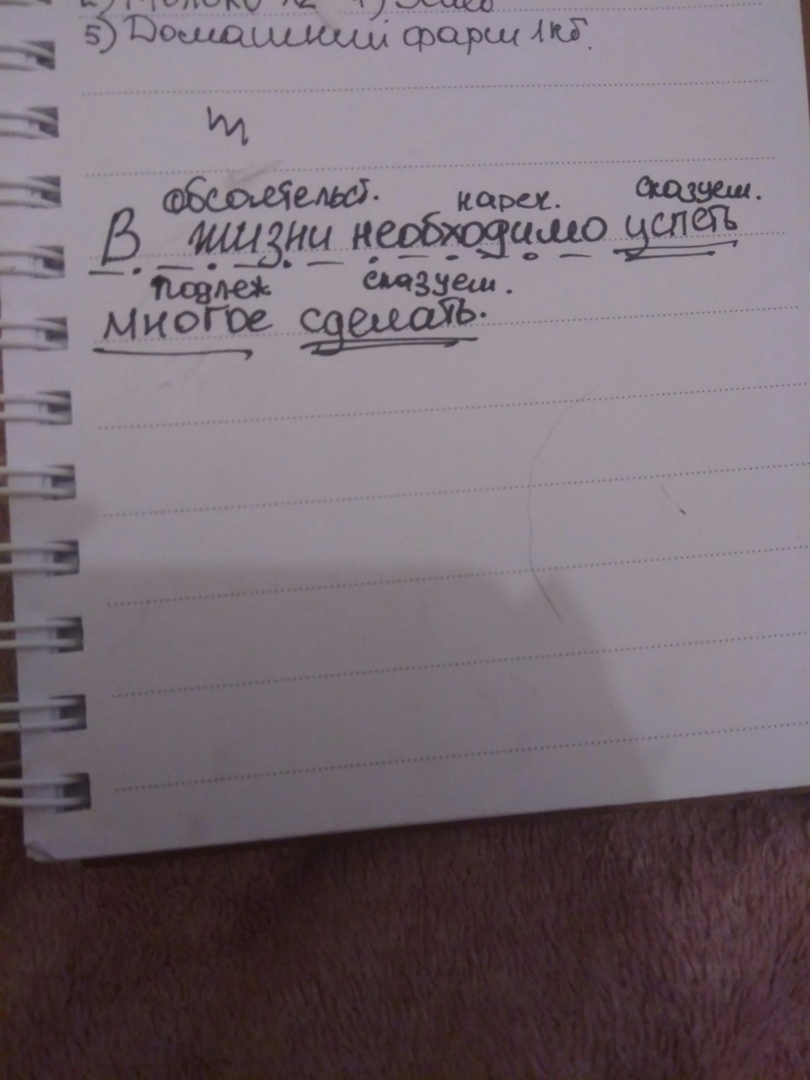 5) Домашний фарш 1кб.
обсоятельст. нареч. сказуем.
В жизни необходимо успеть
подлеж сказуем.
многое сделать.